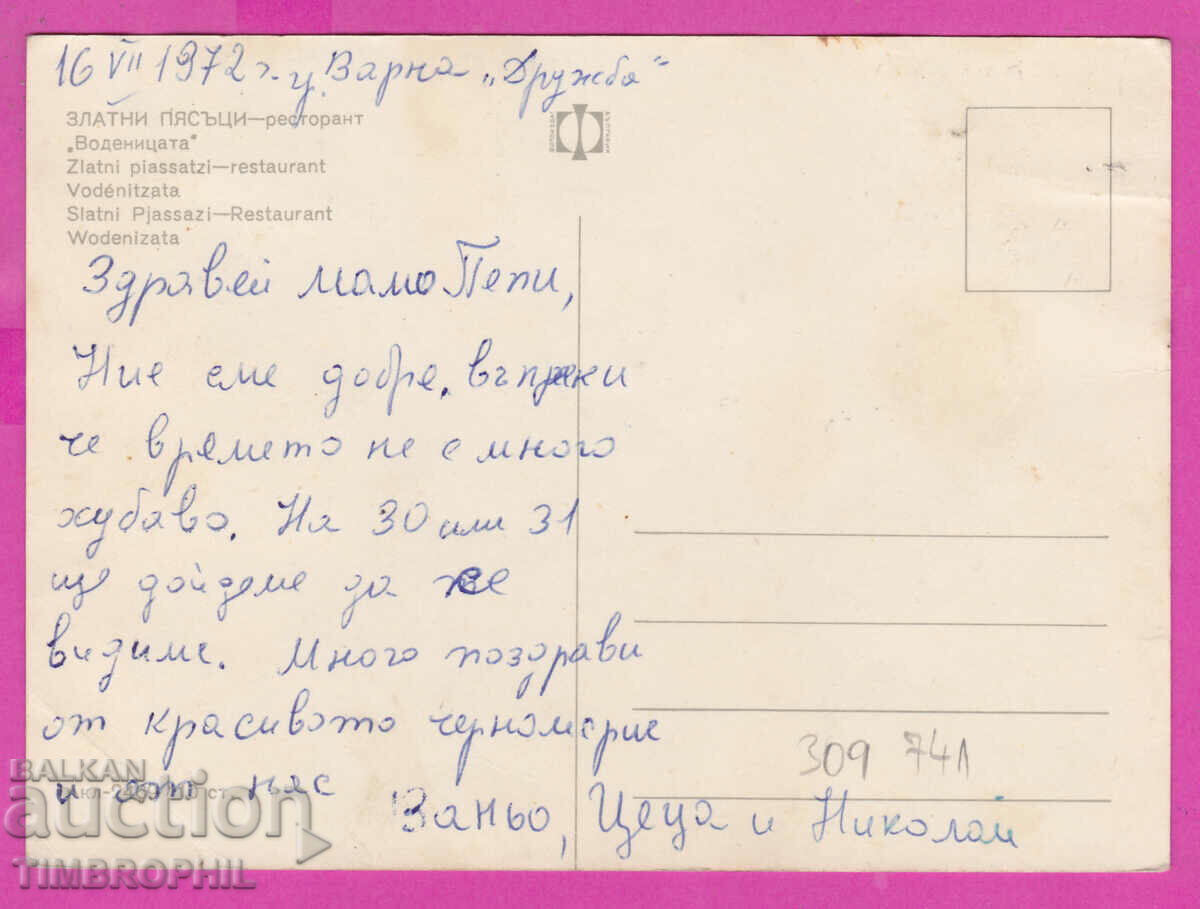 16 VII 1972 г. гр. Варна „Дружба"
ЗЛАТНИ ПЯСЪЦИ—ресторант
„Воденицата"
Zlatni piassatzi—restaurant
Vodénitzata
Slatni Pjassazi—Restaurant
Wodenizata
Здравей мамо Пепи,
Ние сме добре, въпреки
че времето не е много
хубаво. На 30 или 31
ще дойдеме да се
видиме. Много поздрави
от красивото черноморие
и от нас
Ваньо, Цеца и Николай
309 741
BALKAN
auction
TIMBROPHIL